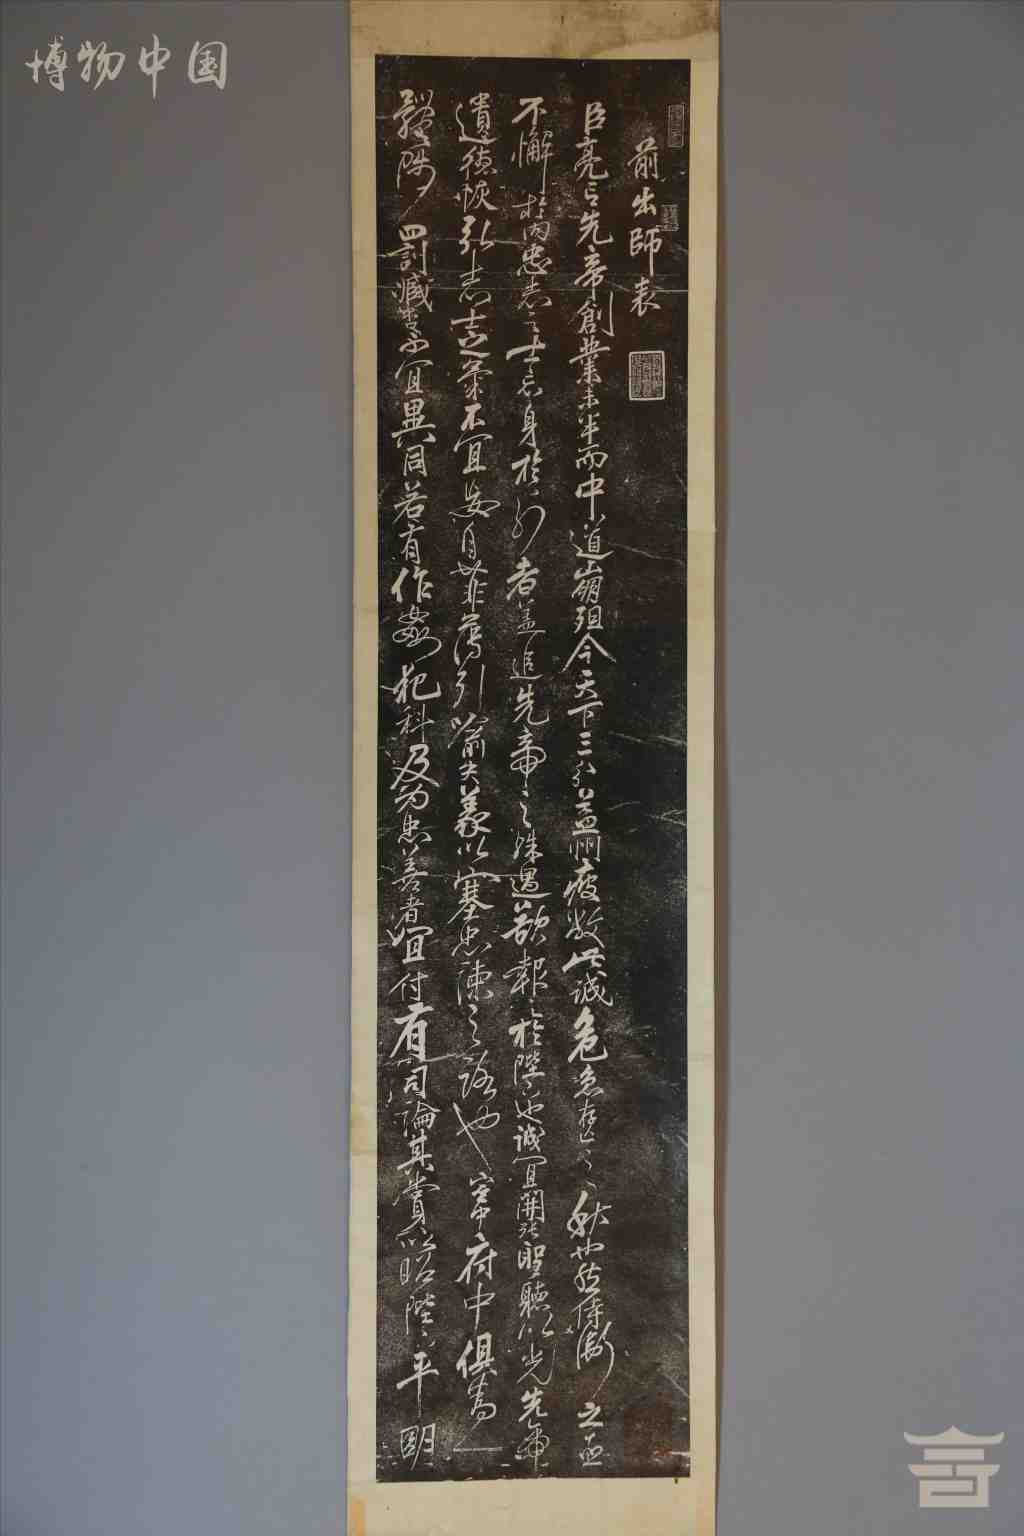 博物中国
前出師表
臣亮言先帝創業未半而中道崩殂今天下三分益州疲敝此誠危急存亡之秋也然侍衛之臣
不懈於內忠志之士忘身於外者蓋追先帝之殊遇欲報之於陛下也誠宜開張聖聽以光先帝
遺德恢弘志士之氣不宜妄自菲薄引喻失義以塞忠諫之路也宮中府中俱為一
體陟罰臧否不宜異同若有作姦犯科及為忠善者宜付有司論其賞以昭陛下平明